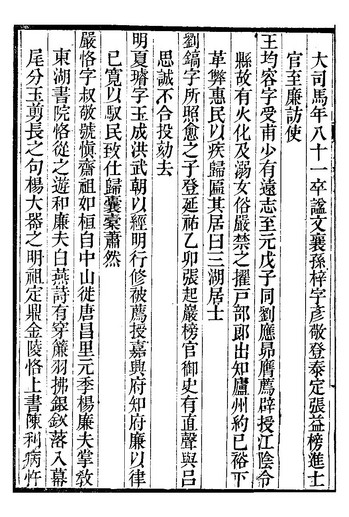 大司馬年八十一卒諡文襄孫梓字彥敬登泰定張益榜進士
官至廉訪使
王均容字受甫少有遠志至元戊子同劉應昴膺薦辟授江陰令
縣故有火化及溺女俗嚴禁之擢戶部郎出知廬州約已裕下
革弊惠民以疾歸區其居曰三湖居士
劉鎬字所照愈之子登延祐乙卯張起巖榜官御史有直聲與呂
思誠不合投劾去
明夏璿字玉成洪武朝以經明行修被薦授嘉興府知府廉以律
已寬以馭民致仕歸囊橐蕭然
嚴恪字叔敬號愼齋祖如桓自中山徙唐昌里元季楊廉夫掌敎
東湖書院恪從之遊和廉夫白燕詩有穿簾羽拂銀釵落入幕
尾分玉剪長之句楊大器之明祖定鼎金陵恪上書陳利病忤